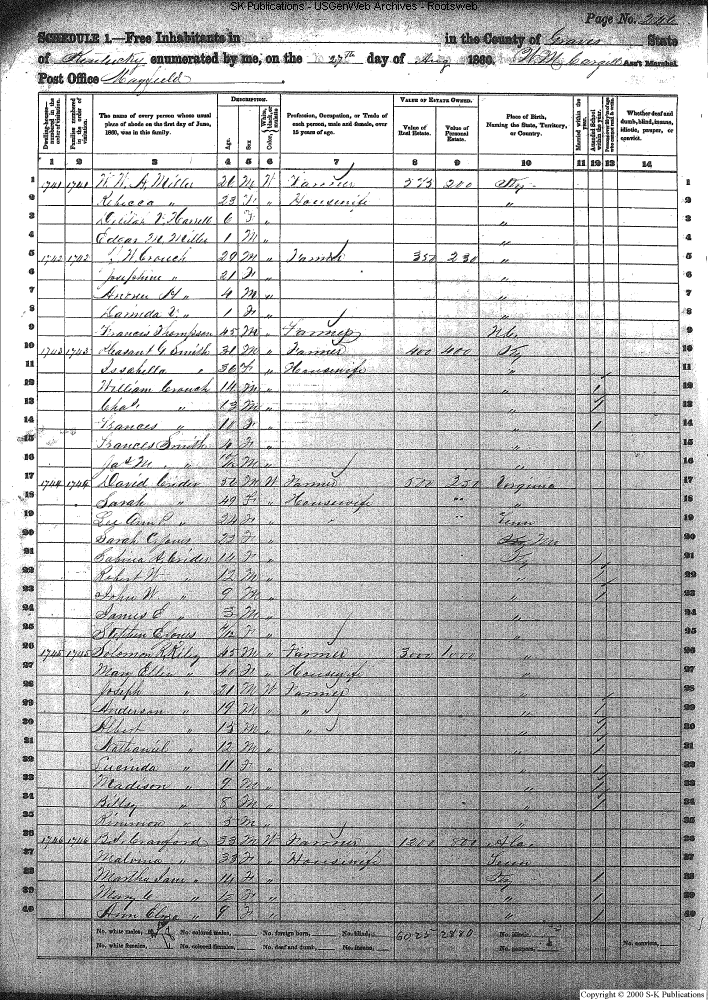 SK-Publications - USGenWeb Archives - Rootsweb
Page No.
SCHEDULE 1.—Free Inhabitants in in the County of Graves State
of Kentucky enumerated by me, on the 27th day of Aug 1860. Ass't Marshal.
Post Office Mayfield
Dwelling-houses numbered in the order of visitation.
Families numbered in the order of visitation.
The name of every person whose usual place of abode on the first day of June, 1860, was in this family.
DESCRIPTION.
Age.
Sex.
Color, White, black, or mulatto.
Profession, Occupation, or Trade of each person, male and female, over 15 years of age.
VALUE OF ESTATE OWNED.
Value of Real Estate.
Value of Personal Estate.
Place of Birth, Naming the State, Territory, or Country.
Married within the year.
Attended School within the year.
Whether deaf and dumb, blind, insane, idiotic, pauper, or convict.
1 2 3 4 5 6 7 8 9 10 11 12 13 14
1 1741 1741 W. W. A. Miller 26 M W Farmer 375 200 Ky 1
2 Rebecca " 23 F " Housewife " 2
3 Harrell 6 F " " 3
4 Edgar M. Miller 1 M " " 4
5 1742 1742 Crouch 29 M " Farmer 350 230 " 5
6 Josephine " 21 F " " 6
7 " 4 M " " 7
8 " 1 F " " 8
9 Francis Thompson 45 M " Farmer 9
10 1743 1743 Pleasant G. Smith 31 M " Farmer 400 400 Ky 10
11 Issabella " 36 F " Housewife " 11
12 William Crouch 14 M " " 1 12
13 Chas. " 13 M " " 1 13
14 Frances " 10 F " " 1 14
15 Frances Smith 4 F " " 15
16 Jas M. " M " " 16
17 1744 1744 David Crider 50 M W Farmer 500 250 Virginia 17
18 Sarah " 49 F " Housewife " " 18
19 " 24 F " " " Tenn 19
20 Sarah C. Jones 22 F " 20
21 Sabina A. Crider 14 F " Ky 1 21
22 Robert W " 12 M " " 1 22
23 John W " 9 M " " 1 23
24 James " 3 M " " 24
25 Stephen Jones " " 25
26 1745 1745 Solomon R. Riley 45 M " Farmer 3000 1000 " 26
27 Mary Ellen " 40 F " Housewife " 27
28 Joseph " 21 M W Farmer " 28
29 Anderson " 19 M " " " 1 29
30 Albert " 15 M " " " 1 30
31 Nathaniel " 12 M " " 1 31
32 Lucinda " 11 F " " 32
33 Madison " 9 M " " 1 33
34 " 8 M " " 1 34
35 " 5 M " " 35
36 1746 1746 Crawford 33 M W Farmer 1200 800 Ala 36
37 Malvina " 33 F " Housewife Tenn 37
38 Martha Jane " 14 F " Ky 1 38
39 Mary " F " " 39
40 Ann " 9 F " " 1 40
No. white males, No. colored males, No. foreign born, No. blind, 6025 2880 No. idiotic,
No. white females, No. colored females, No. deaf and dumb, No. insane, No. paupers, No. convicts,
Copyright © 2000 S-K Publications